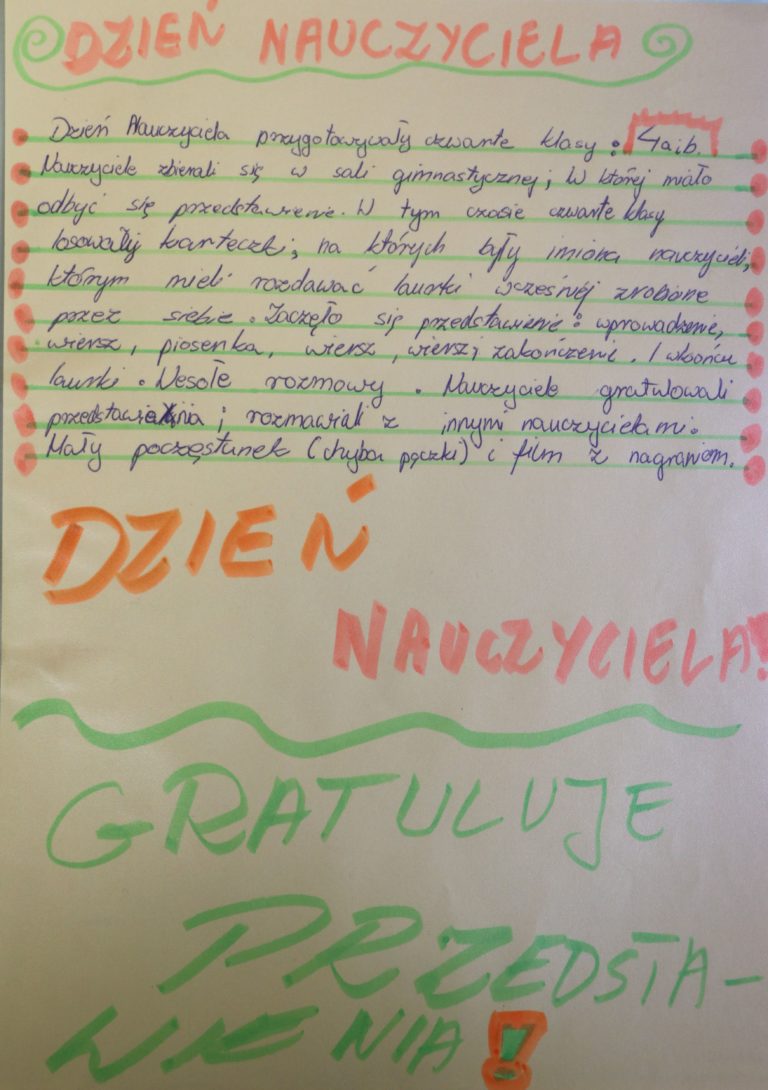 DZIEŃ NAUCZYCIELA
Dzień Nauczyciela przygotowywały czwarte klasy: 4a i b.
Nauczyciele zbierali się w sali gimnastycznej; W której miało
odbyć się przedstawienie. W tym czasie czwarte klasy
losowały karteczki; na których były imiona nauczycieli,
którym mieli rozdawać laurki wcześniej zrobione
przez siebie. Zaczęło się przedstawienie: wprowadzenie,
wiersz, piosenka, wiersz, wiersz i zakończenie. I wkońcu
laurki. Wesołe rozmowy. Nauczyciele gratulowali
przedstawienia i rozmawiali z innymi nauczycielami.
Mały poczęstunek (chyba pączki) i film z nagraniem.
DZIEŃ
NAUCZYCIELA!
GRATULUJE
PRZEDSTA-
WIENIA!